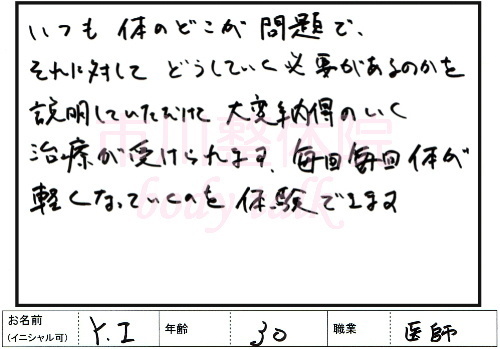 いつも 体のどこが 問題で、
それに対して どうしていく必要があるのかを
説明していただけて 大変納得のいく
治療が受けられます、毎回毎回体が
軽くなっていくのを 体験できます
市川整体院
body talk
お名前
(イニシャル可)
Y.I
年齢
30
職業
医師